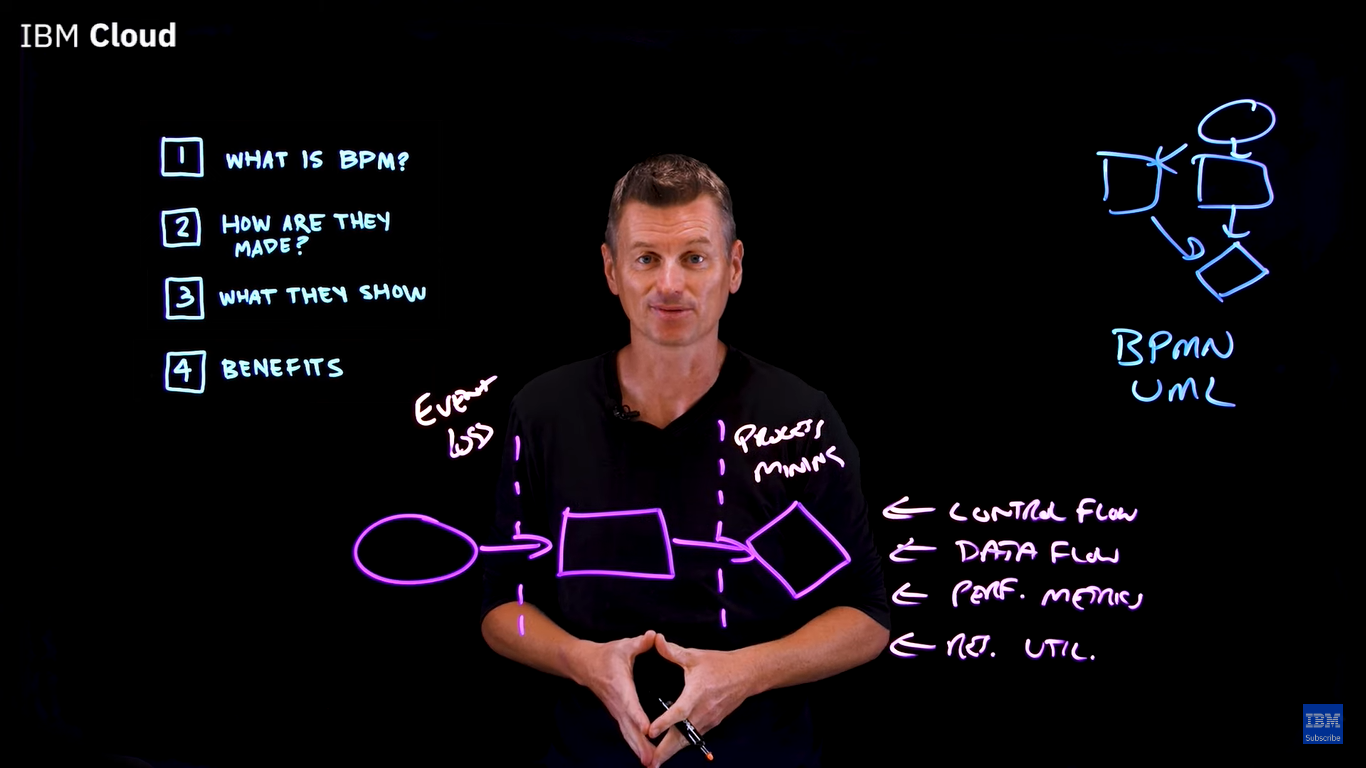 IBM Cloud
1 WHAT IS BPM?
2 HOW ARE THEY
MADE?
3 WHAT THEY SHOW
4 BENEFITS
BPMN
UML
EVENT
LOGS
PROCESS
MINING
← CONTROL FLOW
← DATA FLOW
← PERF. METRICS
← UTIL.
IBM
Subscribe